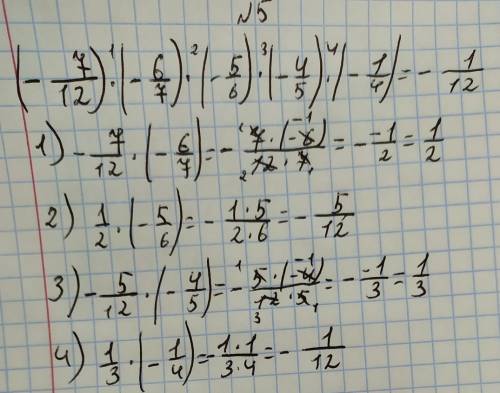 №5
(- 7/12) ·¹ (- 6/7) ·² (- 5/6) ·³ (- 4/5) ·⁴ (- 1/4) = - 1/12
1) - 7/12 · (- 6/7) = - 7 · (-6) / 12 · 7 = - -1/2 = 1/2
2) 1/2 · (- 5/6) = - 1 · 5 / 2 · 6 = - 5/12
3) - 5/12 · (- 4/5) = - 5 · (-4) / 12 · 5 = - -1/3 = 1/3
4) 1/3 · (- 1/4) = - 1 · 1 / 3 · 4 = - 1/12